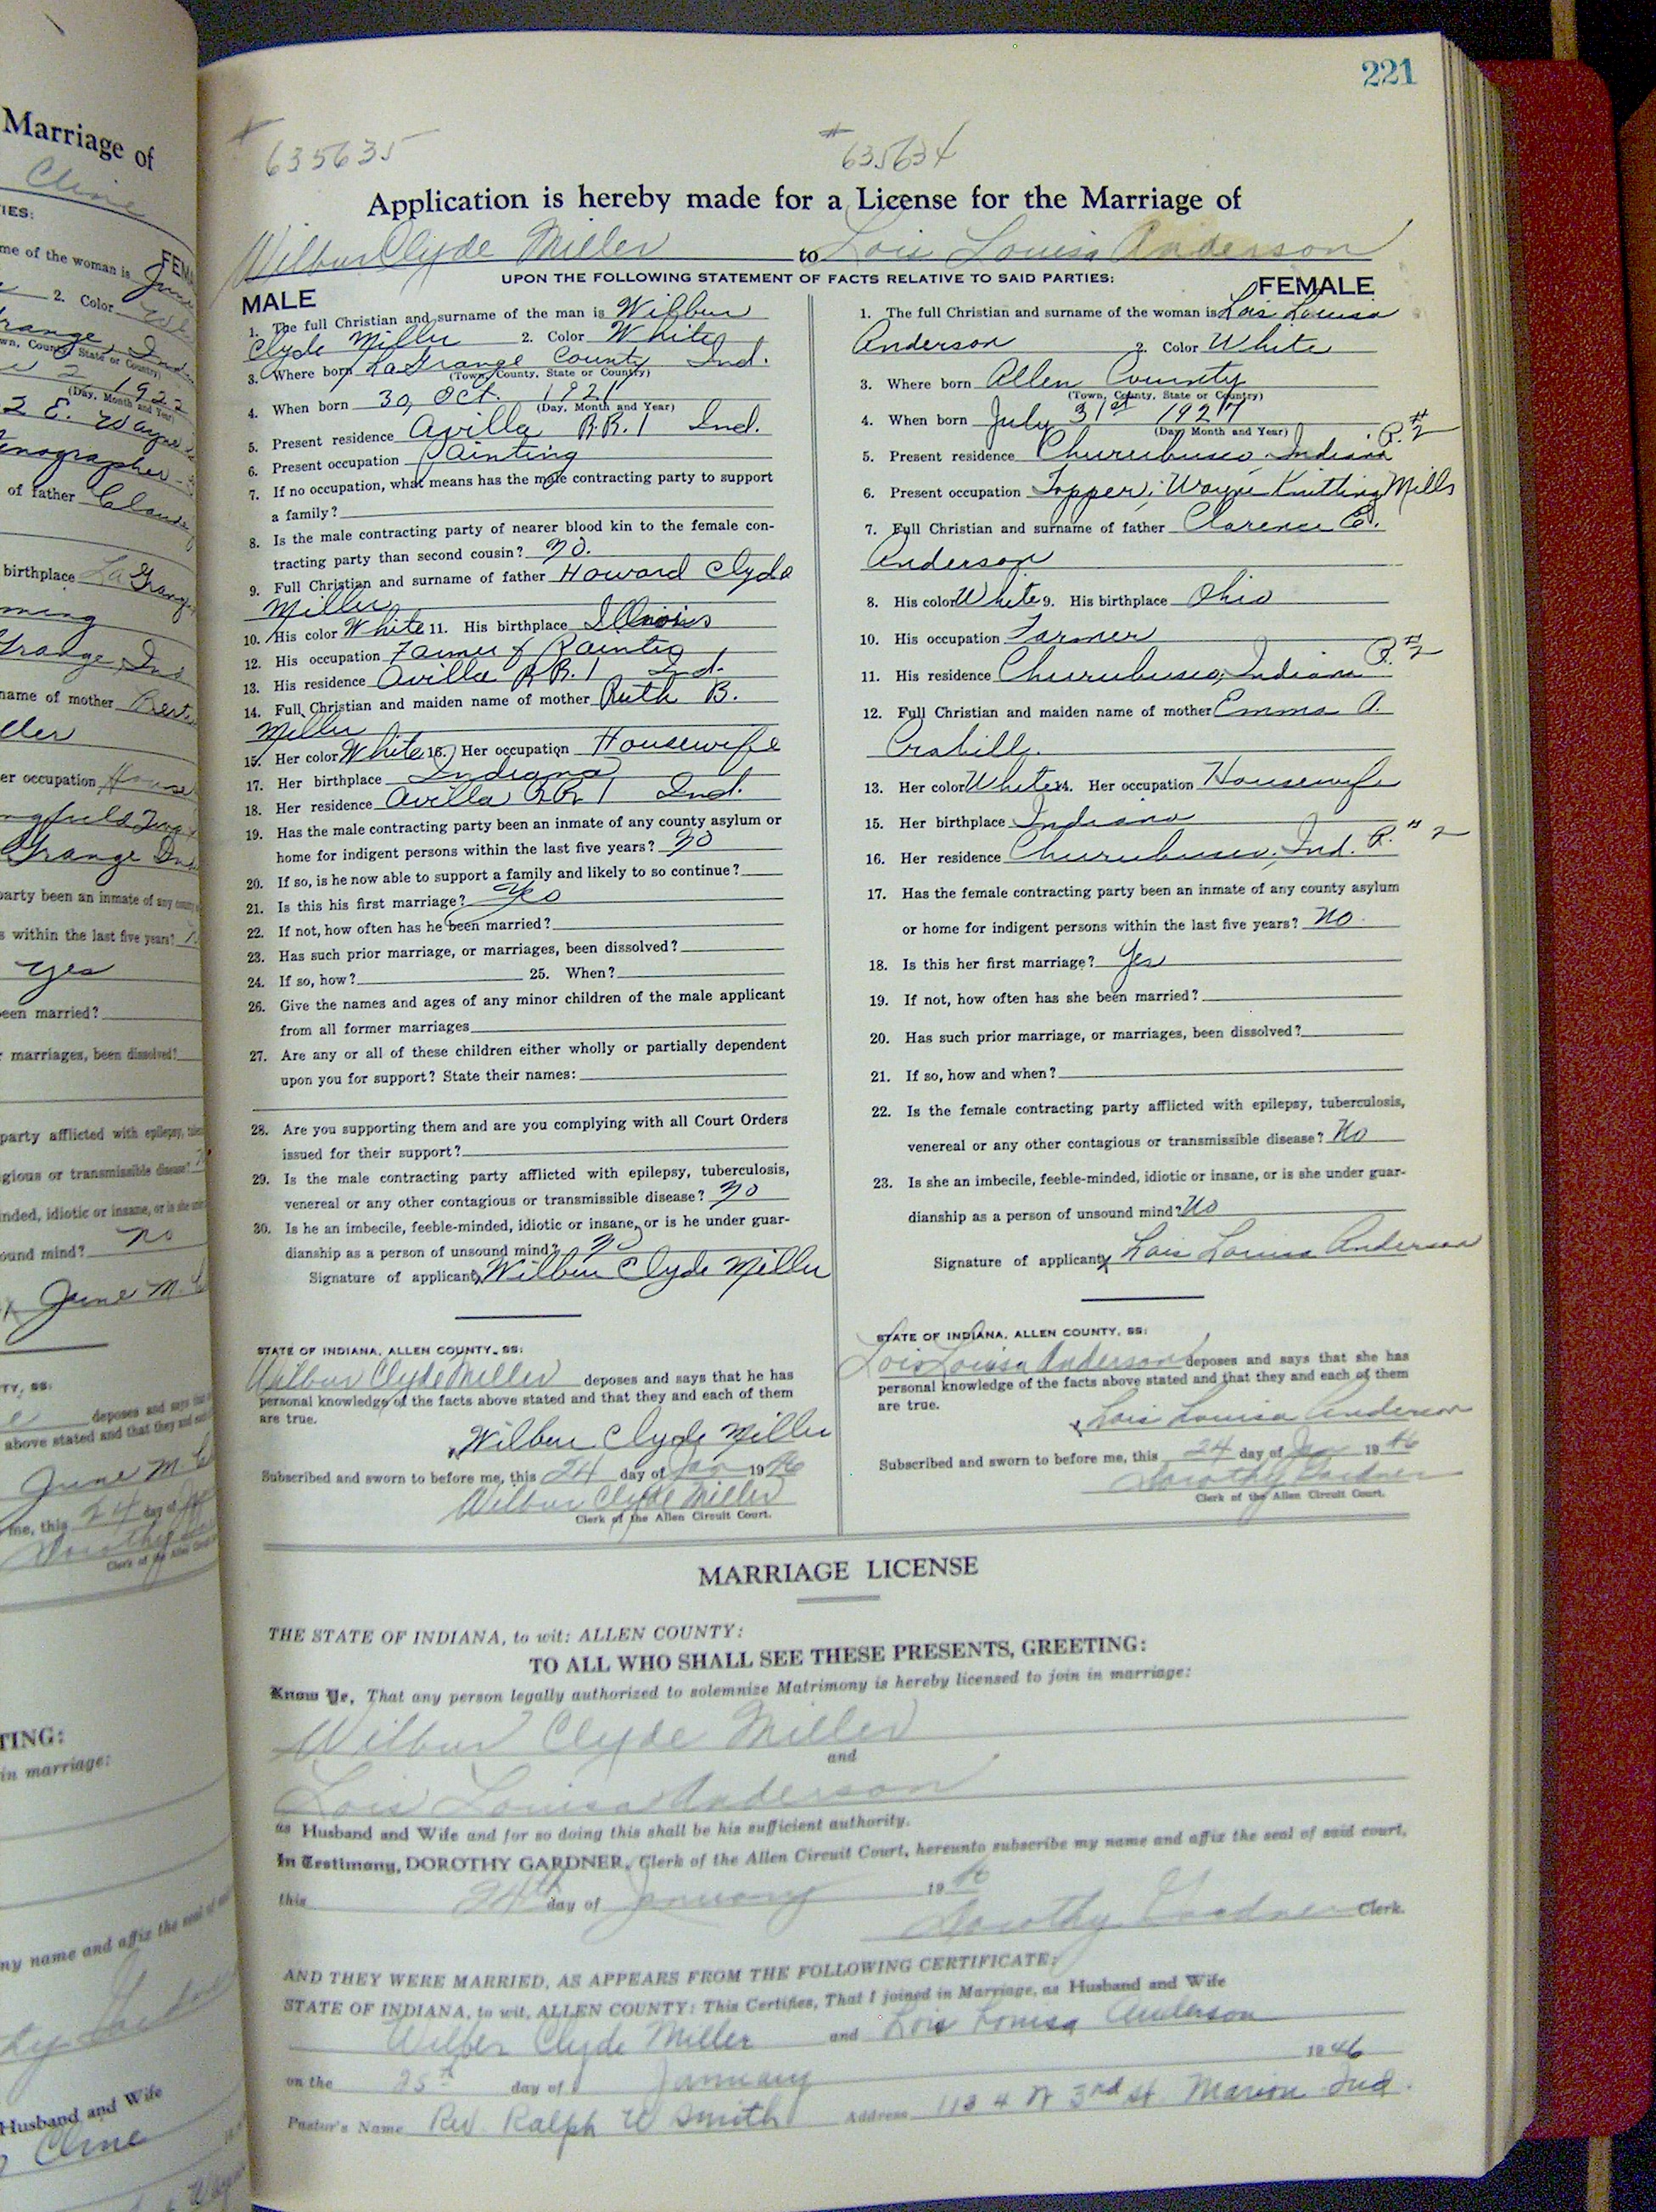 221
# 635635
# 635634
Application is hereby made for a License for the Marriage of
Wilbur Clyde Miller to Lois Louisa Anderson
UPON THE FOLLOWING STATEMENT OF FACTS RELATIVE TO SAID PARTIES:
MALE
1. The full Christian and surname of the man is Wilbur
Clyde Miller 2. Color White
3. Where born LaGrange County Ind.
(Town, County, State or Country)
4. When born 30, Oct. 1921
(Day, Month and Year)
5. Present residence Avilla R.R. 1 Ind.
6. Present occupation Painting
7. If no occupation, what means has the male contracting party to support
a family?
8. Is the male contracting party of nearer blood kin to the female con-
tracting party than second cousin? no.
9. Full Christian and surname of father Howard Clyde
Miller
10. His color White 11. His birthplace Illinois
12. His occupation Farmer & Painting
13. His residence Avilla R.R. 1 Ind.
14. Full Christian and maiden name of mother Ruth B.
Miller
15. Her color White 16. Her occupation Housewife
17. Her birthplace Indiana
18. Her residence Avilla R.R. 1 Ind.
19. Has the male contracting party been an inmate of any county asylum or
home for indigent persons within the last five years? no
20. If so, is he now able to support a family and likely to so continue?
21. Is this his first marriage? yes
22. If not, how often has he been married?
23. Has such prior marriage, or marriages, been dissolved?
24. If so, how? 25. When?
26. Give the names and ages of any minor children of the male applicant
from all former marriages
27. Are any or all of these children either wholly or partially dependent
upon you for support? State their names:
28. Are you supporting them and are you complying with all Court Orders
issued for their support?
29. Is the male contracting party afflicted with epilepsy, tuberculosis,
venereal or any other contagious or transmissible disease? no
30. Is he an imbecile, feeble-minded, idiotic or insane, or is he under guar-
dianship as a person of unsound mind? no
Signature of applicant x Wilbur Clyde Miller
STATE OF INDIANA, ALLEN COUNTY, SS:
Wilbur Clyde Miller deposes and says that he has
personal knowledge of the facts above stated and that they and each of them
are true.
x Wilbur Clyde Miller
Subscribed and sworn to before me, this 24 day of Jan 1946
Wilbur Clyde Miller
Clerk of the Allen Circuit Court.
FEMALE
1. The full Christian and surname of the woman is Lois Louisa
Anderson 2. Color White
3. Where born Allen County
(Town, County, State or Country)
4. When born July 31st 1927
(Day, Month and Year)
5. Present residence Churubusco, Indiana R. #2
6. Present occupation Topper, Wayne Knitting Mills
7. Full Christian and surname of father Clarence E.
Anderson
8. His color White 9. His birthplace Ohio
10. His occupation Farmer
11. His residence Churubusco, Indiana R. #2
12. Full Christian and maiden name of mother Emma A.
Crabill.
13. Her color White 14. Her occupation Housewife
15. Her birthplace Indiana
16. Her residence Churubusco, Ind. R. # 2
17. Has the female contracting party been an inmate of any county asylum
or home for indigent persons within the last five years? no
18. Is this her first marriage? Yes
19. If not, how often has she been married?
20. Has such prior marriage, or marriages, been dissolved?
21. If so, how and when?
22. Is the female contracting party afflicted with epilepsy, tuberculosis,
venereal or any other contagious or transmissible disease? No
23. Is she an imbecile, feeble-minded, idiotic or insane, or is she under guar-
dianship as a person of unsound mind? No
Signature of applicant x Lois Louisa Anderson
STATE OF INDIANA, ALLEN COUNTY, SS:
Lois Louisa Anderson deposes and says that she has
personal knowledge of the facts above stated and that they and each of them
are true.
x Lois Louisa Anderson
Subscribed and sworn to before me, this 24 day of Jan 1946
Dorothy Gardner
Clerk of the Allen Circuit Court.
MARRIAGE LICENSE
THE STATE OF INDIANA, to wit: ALLEN COUNTY:
TO ALL WHO SHALL SEE THESE PRESENTS, GREETING:
Know Ye, That any person legally authorized to solemnize Matrimony is hereby licensed to join in marriage:
Wilbur Clyde Miller
and
Lois Louisa Anderson
as Husband and Wife and for so doing this shall be his sufficient authority.
In Testimony, DOROTHY GARDNER, Clerk of the Allen Circuit Court, hereunto subscribe my name and affix the seal of said court,
this 24th day of January 1946
Dorothy Gardner Clerk.
AND THEY WERE MARRIED, AS APPEARS FROM THE FOLLOWING CERTIFICATE:
STATE OF INDIANA, to wit, ALLEN COUNTY: This Certifies, That I joined in Marriage, as Husband and Wife
Wilber Clyde Miller and Lois Louisa Anderson
on the 25th day of January 1946
Pastor's Name Rev. Ralph W Smith Address 1134 N 3rd St. Marion Ind.